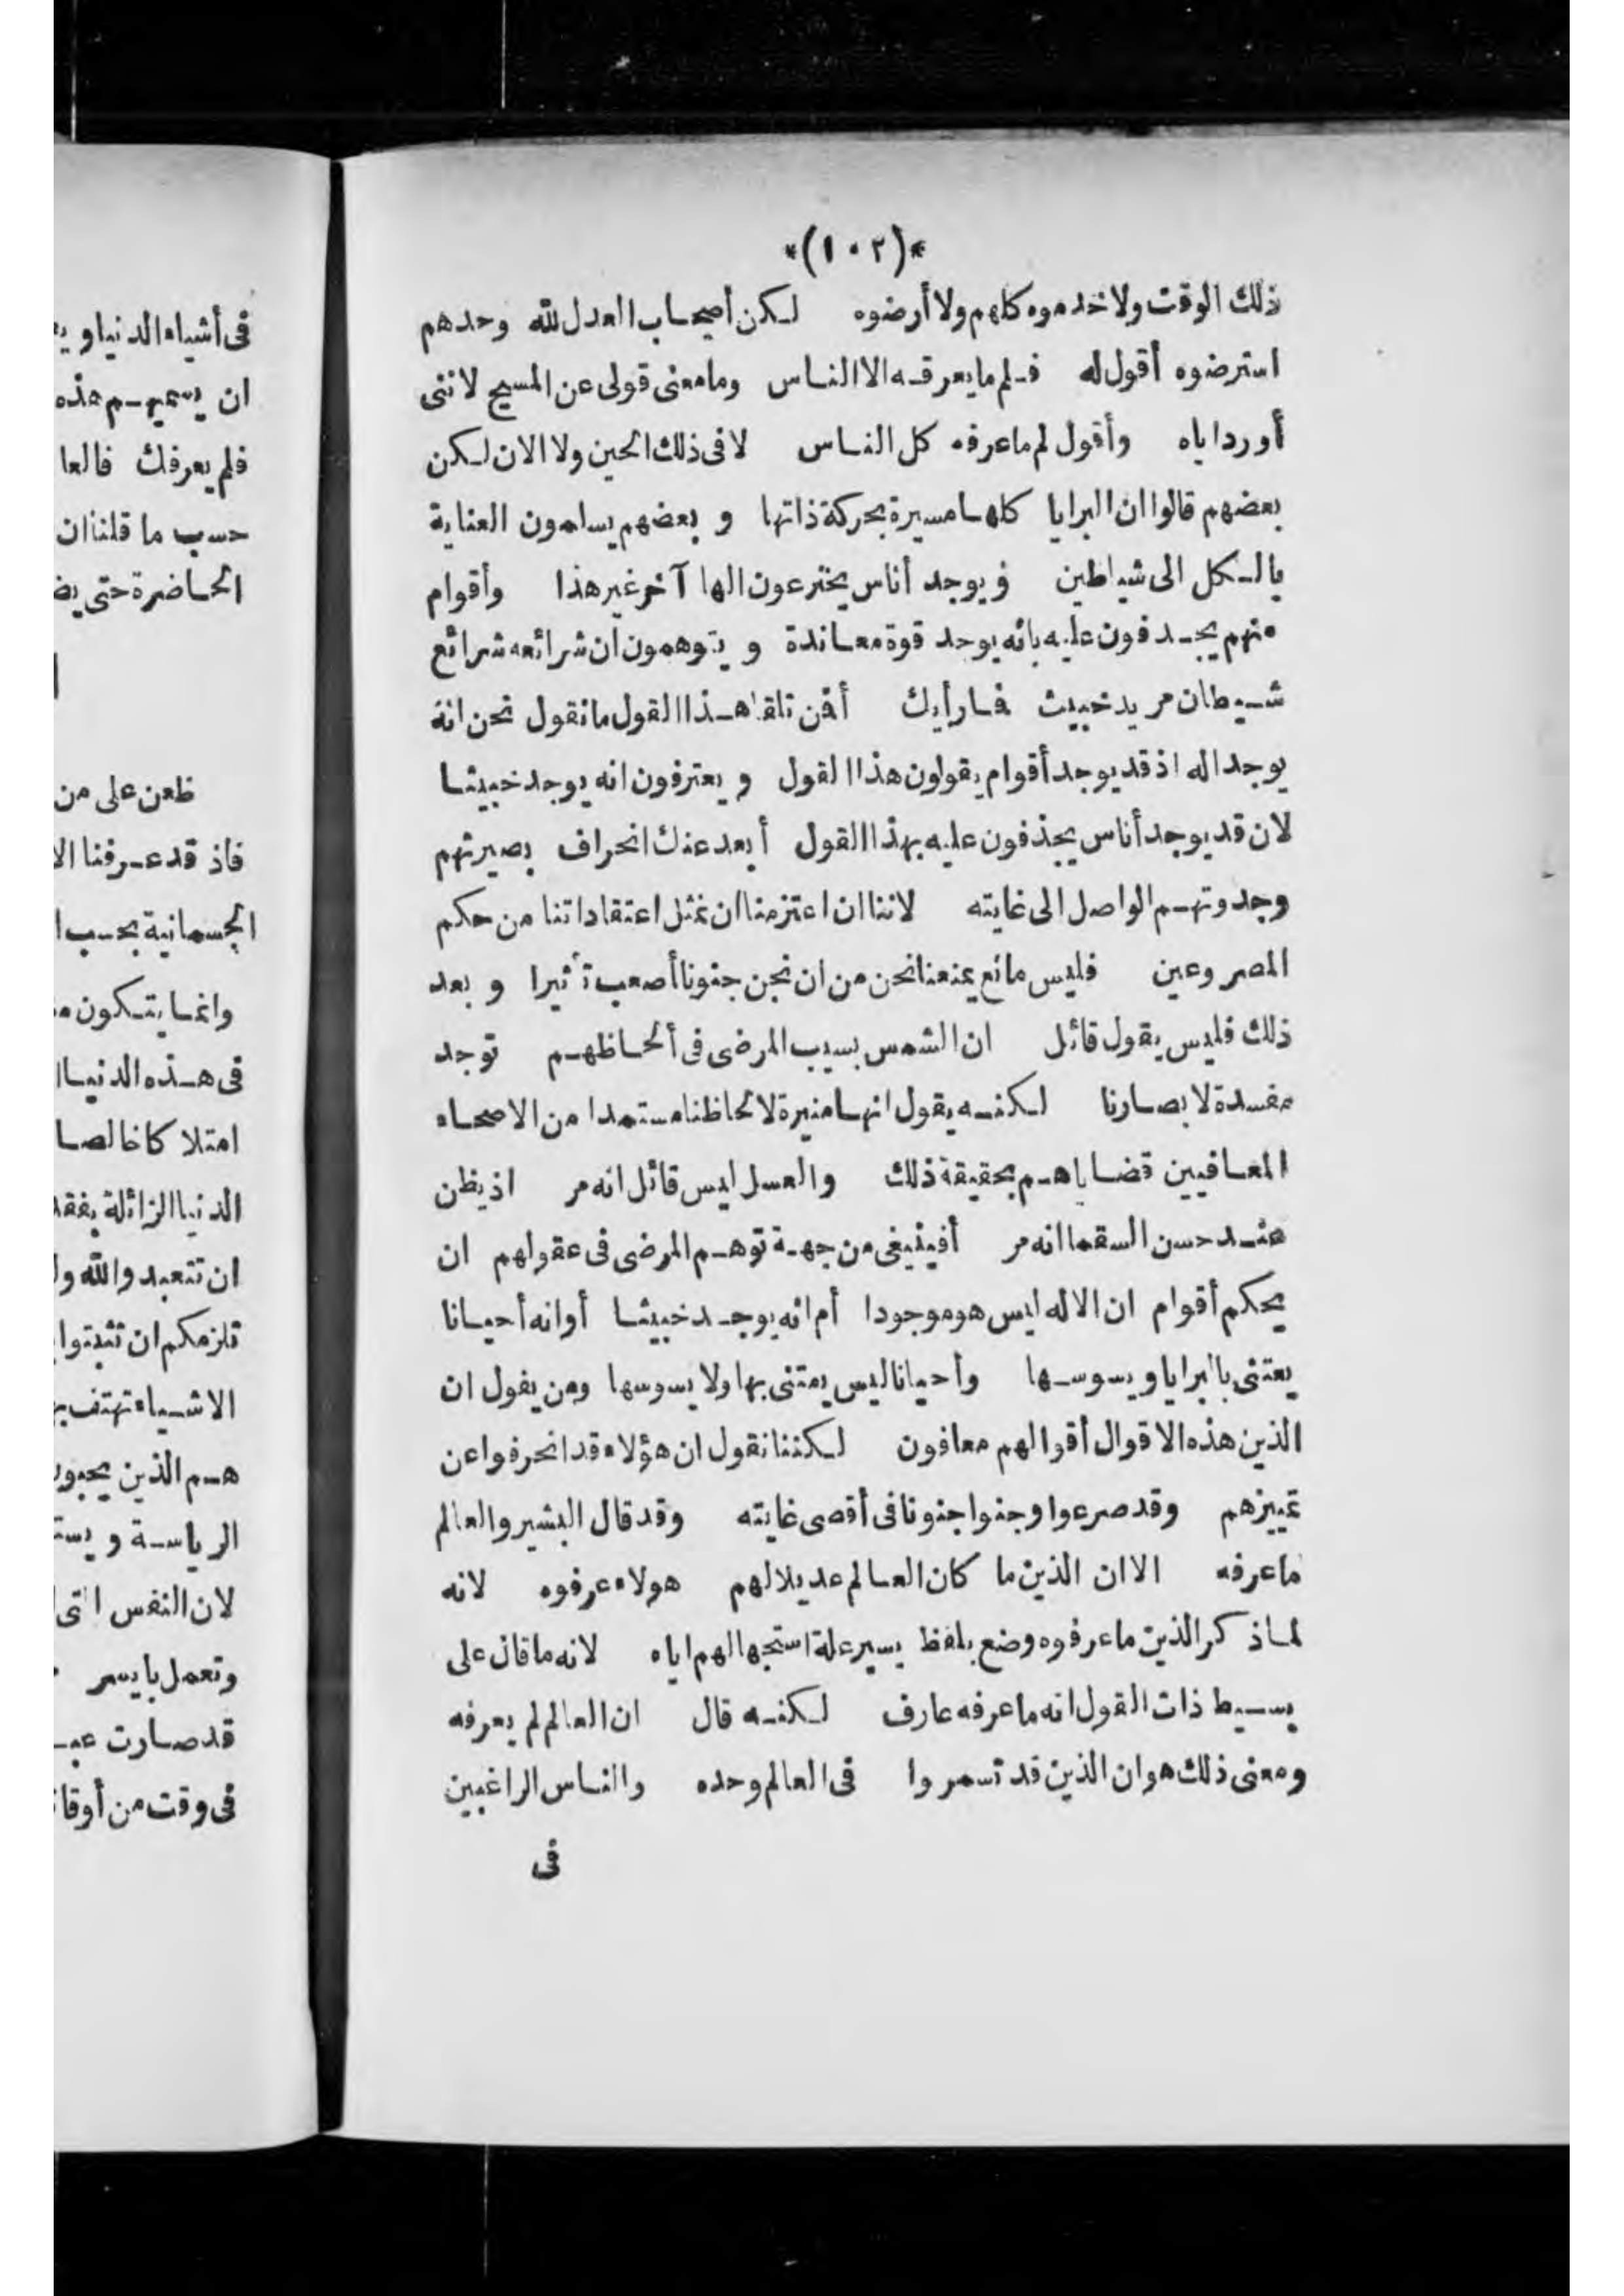 *(١٠٢)*
ذلك الوقت ولا خدموه كلهم ولا أرضوه لكن أصحاب العدل لله وحدهم
استرضوه أقول له فلم ما يعرفه الا الناس وما معنى قولى عن المسيح لاننى
أورد اياه وأقول لم ما عرفه كل الناس لا فى ذلك الحين ولا الان لكن
بعضهم قالوا ان البرايا كلها مسيرة بحركة ذاتها و بعضهم يسلمون العناية
بالكل الى شياطين ويوجد أناس يخترعون الها آخر غير هذا وأقوام
منهم يجدفون عليه بانه يوجد قوة معاندة و يتوهمون ان شرائعه شرائع
شيطان مريد خبيث فما رأيك أفن تلقا هذا القول ما نقول نحن انه
يوجد اله اذ قد يوجد أقوام يقولون هذا القول و يعترفون انه يوجد خبيثا
لان قد يوجد أناس يجذفون عليه بهذا القول أبعد عنك انحراف بصيرتهم
وجدوتهم الواصل الى غايته لاننا ان اعتزمنا ان نمثل اعتقاداتنا من حكم
المصروعين فليس مانع يمنعنا نحن من ان نجن جنونا أصعب تأثيرا و بعد
ذلك فليس يقول قائل ان الشمس بسبب المرضى فى ألحاظهم توجد
مفسدة لابصارنا لكنه يقول انها منيرة لالحاظنا مستمدا من الاصحاء
المعافيين قضاياهم بحقيقة ذلك والعسل ليس قائل انه مر اذ يظن
عند حسن السقما انه مر أفينبغى من جهة توهم المرضى فى عقولهم ان
يحكم أقوام ان الاله ليس هو موجودا أم انه يوجد خبيثا أو انه أحيانا
يعتنى بالبرايا و يسوسها وأحيانا ليس يعتنى بها ولا يسوسها ومن يقول ان
الذين هذه الاقوال أقوالهم معافون لكننا نقول ان هؤلاء قد انحرفوا عن
تمييزهم وقد صرعوا وجنوا جنونا فى أقصى غايته وقد قال البشير والعالم
ما عرفه الا ان الذين ما كان العالم عديلا لهم هولاء عرفوه لانه
لما ذكر الذين ما عرفوه وضع بلفظ يسير علة استجهالهم اياه لانه ما قال على
بسيط ذات القول انه ما عرفه عارف لكنه قال ان العالم لم يعرفه
ومعنى ذلك هو ان الذين قد تسمروا فى العالم وحده والناس الراغبين
فى
فى أشياء الدنيا و
ان
هذه
فلم يعرفك فالعا
حسب ما قلنا ان
الحاضرة حتى
ظعن على من
فاذ قد عرفنا
الجسمانية بحسب
وانما يتكون
فى هذه الدنيا
امتلاكا خالصا
الدنيا الزائلة
ان تتعبدوا لله
تلزمكم ان تثبتوا
الاشياء تهتف
هم الذين يحبون
الرياسة و
لان النفس التى
وتعمل بايسر
قد صارت
فى وقت من